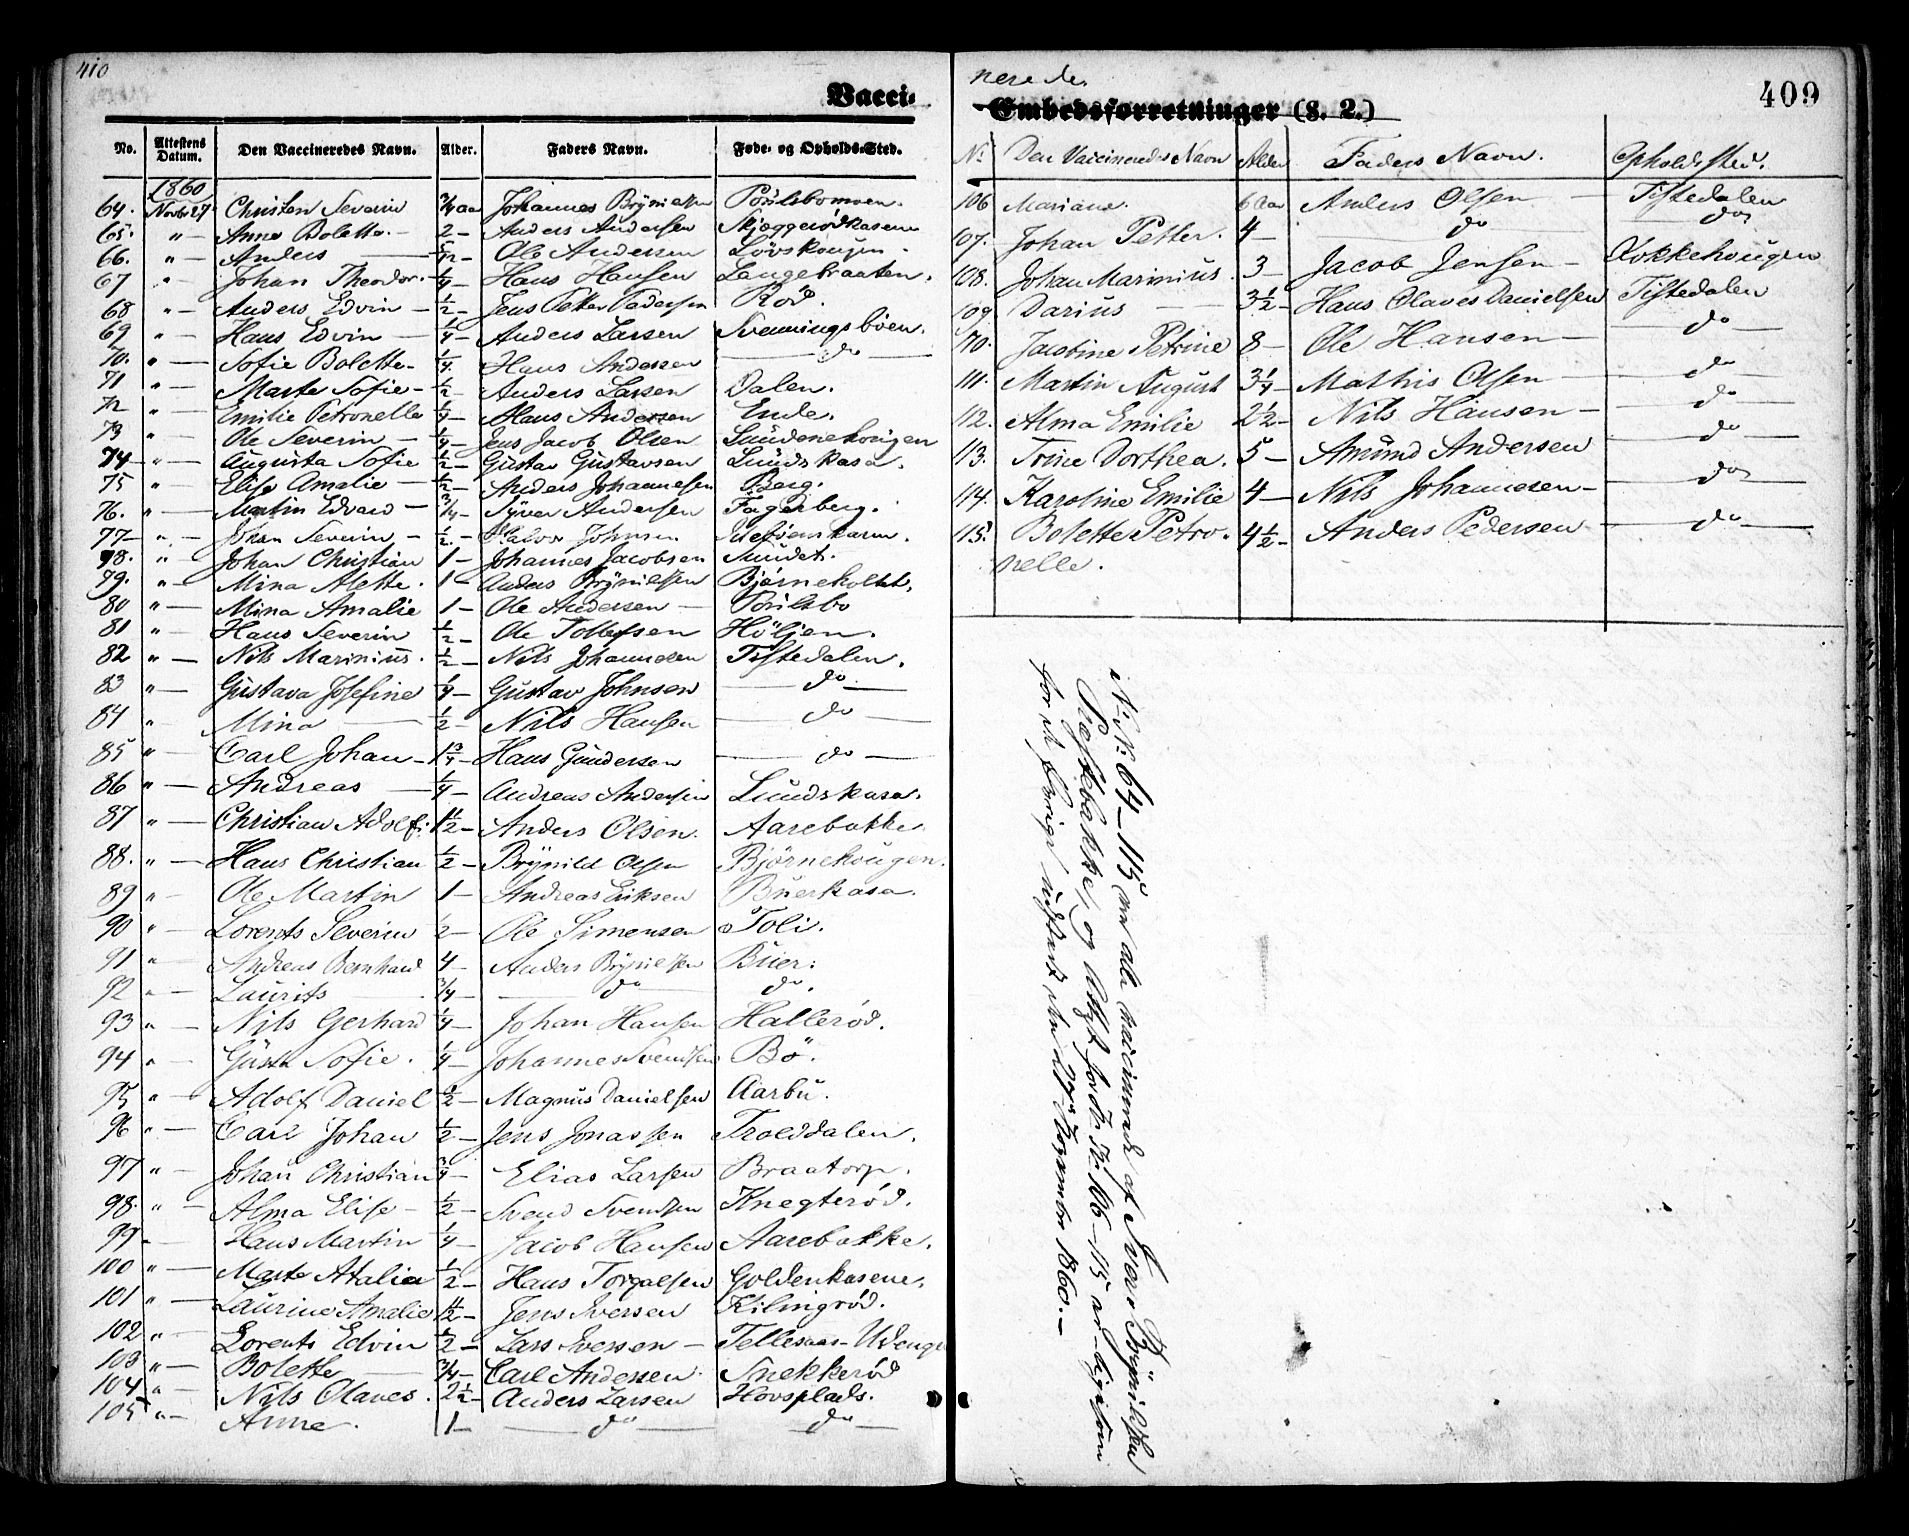 410
Vacci-
No. Attestens Datum. Den Vaccineredes Navn. Alder. Faders Navn. Føde- og Opholds-Sted.
1860
64. Novbr 27 Christen Severin 3/4 Aar Johannes Brynildsen
65. " — Anne Bolette — 2 — Anders Andersen Skjæggerødkasene
66. " — Anders — Ole Andersen
67 " — Johan Theodor. 1/4 — Hans Hansen Langebraaten.
68 " — Anders Edvin — 1/2 — Jens Petter Pedersen Röd.
69 " — Hans Edvin — 1/4 — Anders Larsen Svenningsböen.
70. " — Sofie Bolette — 1/4. Hans Andersen — do —
71 " — Marte Sofie — 1/2 — Anders Larsen Dalen.
72 " — Emilie Petronelle 1/4 — Hans Andersen Ende.
73 " — Ole Severin — 1/4 — Jens Jacob Olsen
74 — " — Augusta Sofie 1/2 — Gustav Gustavsen Lundskasa.
75 " — Elise Amalie — 1/2 — Anders Johannesen Berg.
76. " — Martin Edvard — 3/4 — Syver Andersen Fagerberg.
77 — " — Johan Severin — 1/2. — Halvor Johnsen
78. " — Johan Christian 1 — Johannes Jacobsen Sundet.
79. " — Mina Alette. 1 — Anders Brynildsen Bjørneholtet.
80 " — Mina Amalie 1 — Ole Andersen —
81 " — Hans Severin 1/2 — Ole Tollefsen Höljen.
82 " — Nils Marinius. 1/2 — Nils Johannesen Tistedalen.
83 " — Gustava Josefine 1/4 — Gustav Johnsen — do —
84 " — Mina — 1/2 — Nils Hansen — do —
85 " — Carl Johan — 1 3/4 — Hans Gundersen — do —
86 " — Andreas — 1/4 — Andreas Andersen Lundskasa.
87 " — Christian Adolf. 1 1/2 — Anders Olsen. Aarebakke.
88. " — Hans Christian 1/2 — Brynild Olsen Bjørnehougen.
89 " — Ole Martin 1 — Andreas Eriksen Buerkasa.
90 " — Lorents Severin 1/2 — Ole Simensen Toli.
91 " — Andreas Bernhard 4 — Anders Brynildsen Buer.
92 " — Laurits — 3/4 — do — do.
93 " — Nils Gerhard 1/4 — Johan Hansen Hallerød.
94 " — Gusta Sofie. 1/4 — Johannes Svendsen Bö.
95 " — Adolf Daniel 1/2 — Magnus Danielsen Aarbu.
96 " — Carl Johan 1/2 — Jens Jonassen Troldalen.
97 " — Johan Christian 3/4 — Elias Larsen Braatorp.
98. " — Alma Elise — 1/2 — Svend Svendsen Knegterød.
99 " — Hans Martin 1/4 — Jacob Hansen Aarebakke.
100 " — Marte Atalia 1/2 — Hans Torgalsen Goldenkasene.
101 " — Laurine Amalie 1 1/2 — Jens Iversen Kilingrød.
102 " — Lorents Edvin 1/2 — Lars Iversen — Tellesaas-Udenge
103 " — Bolette — 3/4 — Carl Andersen. Snekkerød
104 " — Nils Olaves. 2 1/2 — Anders Larsen Hovsplads.
105 " — Anne. 1 — do — — do —
nerede.
409
Embedsforretninger (§. 2.)
No. Den Vaccineredes Navn Alder Faders Navn. Opholdssted.
106 Mariane. 6 Aar Anders Olsen — Tistedalen
107. Johan Petter. 4 — do — do
108. Johan Marinius. 3 — Jacob Jensen — Kokkehougen
109 Darius — 3 1/2 — Hans Olaves Danielsen Tistedalen
70. Jacobine Petrine 8 — Ole Hansen — — do —
111. Martin August 3 1/4 — Mathis Olsen — — do —
112. Alma Emilie 2 1/2 — Nils Hansen — — do —
113. Trine Dorthea. 5 — Amund Andersen — do —
114. Karoline Emilie 4 — Nils Johannesen — — do —
115. Bolette Petro- 4 1/2 — Anders Pedersen — do —
nelle.
N.B. No. 64 — 115 ere alle vaccinerede af Iver Brynildsen
Præstebakke, og Attest for No. 106 — 115 er ligesom
for de øvrige udstedt den 27de November 1860. —